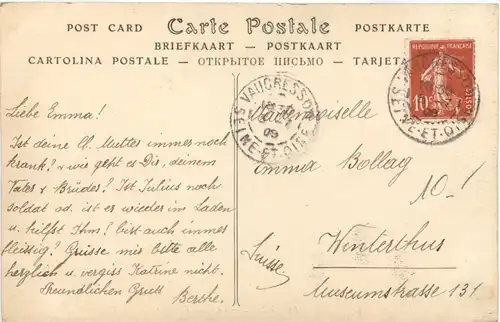 POST CARD Carte Postale POSTKARTE
BRIEFKAART — POSTKAART
CARTOLINA POSTALE — ОТКРЫТОЕ ПИСЬМО — TARJETA
Liebe Emma!
Ist deine lb. Mutter immer noch
krank? & wie geht es Dir, deinem
Vater & Bruder? Ist Julius noch
soldat od. ist er wieder im Laden
u. hilfst Ihm? bist auch immer
fleissig? Grüsse mir bitte alle
herzlich u. vergiss Katrine nicht.
Freundlichen Gruss
Berthe.
VAUCRESSON
09
SEINE-ET-OISE
REPUBLIQUE FRANÇAISE
10
POSTES
SEINE-ET-OISE
Mademoiselle
Emma Bollag
10.-
Winterthur
Suisse
Museumstrasse 131